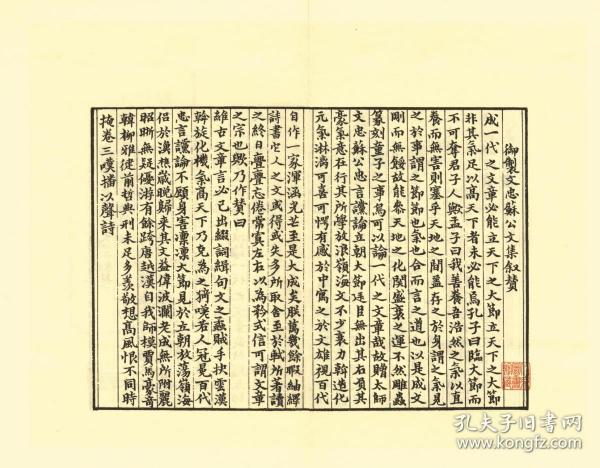 御製文忠蘇公文集叙贊
成一代之文章必能立天下之大節立天下之大節
非其氣足以高天下者未必能焉孔子曰臨大節而
不可奪君子人歟孟子曰我善養吾浩然之氣以直
養而無害則塞乎天地之間蓋存之於身謂之氣見
之於事謂之節節也氣也合而言之道也以是成文
剛而無餒故能參天地之化關盛衰之運不然雕蟲
篆刻童子之事焉可以論一代之文章哉故贈太師
文忠蘇公忠言讜論立朝大節廷臣無出其右負其
豪氣志在行其所學放浪嶺海文不少衰力斡造化
元氣淋漓可喜可愕有感於中寓之於文雄視百代
自作一家渾涵光芒至是大成矣朕萬幾餘暇紬繹
詩書它人之文或得或失多所取舍至於軾所著讀
之終日亹亹忘倦常寘左右以為矜式信可謂文章
之宗也歟乃作贊曰
維古文章言必己出綴詞緝句文之蟊賊手抉雲漢
斡旋化機氣高天下乃克為之猗嗟若人冠冕百代
忠言讜論不顧身害凜凜大節見於立朝放蕩嶺海
侶於漁樵歲晚歸來其文益偉波瀾老成無所附麗
昭晰無疑優游有餘跨唐越漢自我師模賈馬豪奇
韓柳雅健前哲典刑未足多羨敬想高風恨不同時
掩卷三嘆播以聲詩
孔夫子旧书网
www.kongfz.com